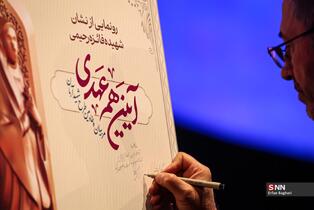 رونمایی از نشان
شهیده فائزه رحیمی
آیین هم عهدی
SNN
Erfan Bagheri